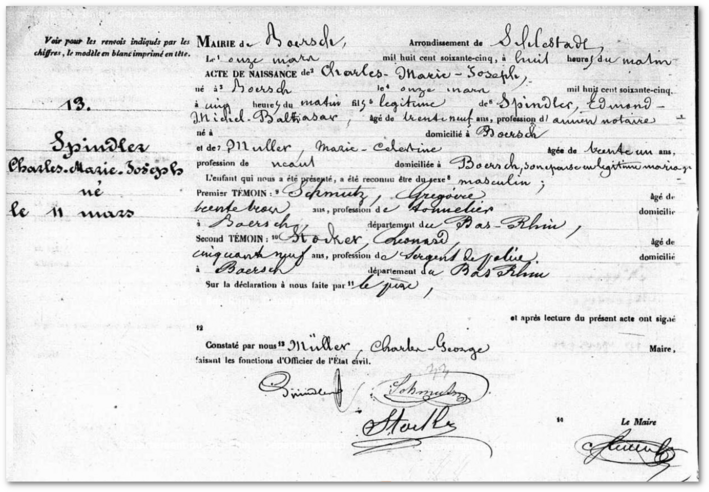 Voir pour les renvois indiqués par les
chiffres, le modèle en blanc imprimé en tête.
13.
Spindler
Charles-Marie-Joseph
né
le 11 mars
MAIRIE de Boersch, Arrondissement de Schlestadt,
Le 1 onze mars mil huit cent soixante-cinq, à huit heures du matin
ACTE DE NAISSANCE de 2 Charles-Marie-Joseph,
né à 3 Boersch le 4 onze mars mil huit cent soixante-cinq.
à cinq heures du matin fils 5 légitime de 6 Spindler, Edmond-
Michel-Balthasar, âgé de trente neuf ans, profession d'ancien notaire
né à domicilié à Boersch
et de 7 Muller, Marie-Célestine âgée de trente un ans,
profession de néant domiciliée à Boersch, son épouse en légitime mariage
L'enfant qui nous a été présenté, a été reconnu être du sexe 8 masculin;
Premier TÉMOIN : 9 Schmutz, Grégoire âgé de
trente trois ans, profession de tonnelier domicilié
à Boersch, département du Bas-Rhin,
Second TÉMOIN : 10 Stocker, Léonard, âgé de
cinquante neuf ans, profession de sergent de police. domicilié
à Boersch département du Bas Rhin
Sur la déclaration à nous faite par 11 le père,
et après lecture du présent acte ont signé
12
Constaté par nous 13 Müller, Charles-George Maire,
faisant les fonctions d'Officier de l'État civil.
Spindler Schmutz
14 Le Maire